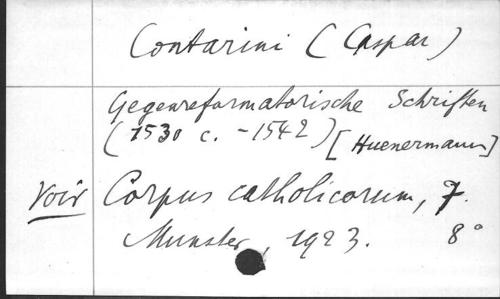 Contarini (Caspar)
Gegenreformatorische Schriften
(1530 c. - 1542) [Huenermann]
Voir Corpus catholicorum, 7.
Munster, 1923. 8°